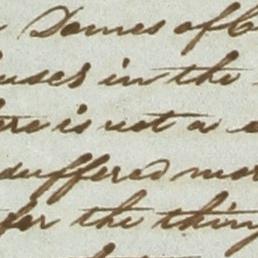 Domes of
uses in the
ere is not a
suffered mor
for the thing